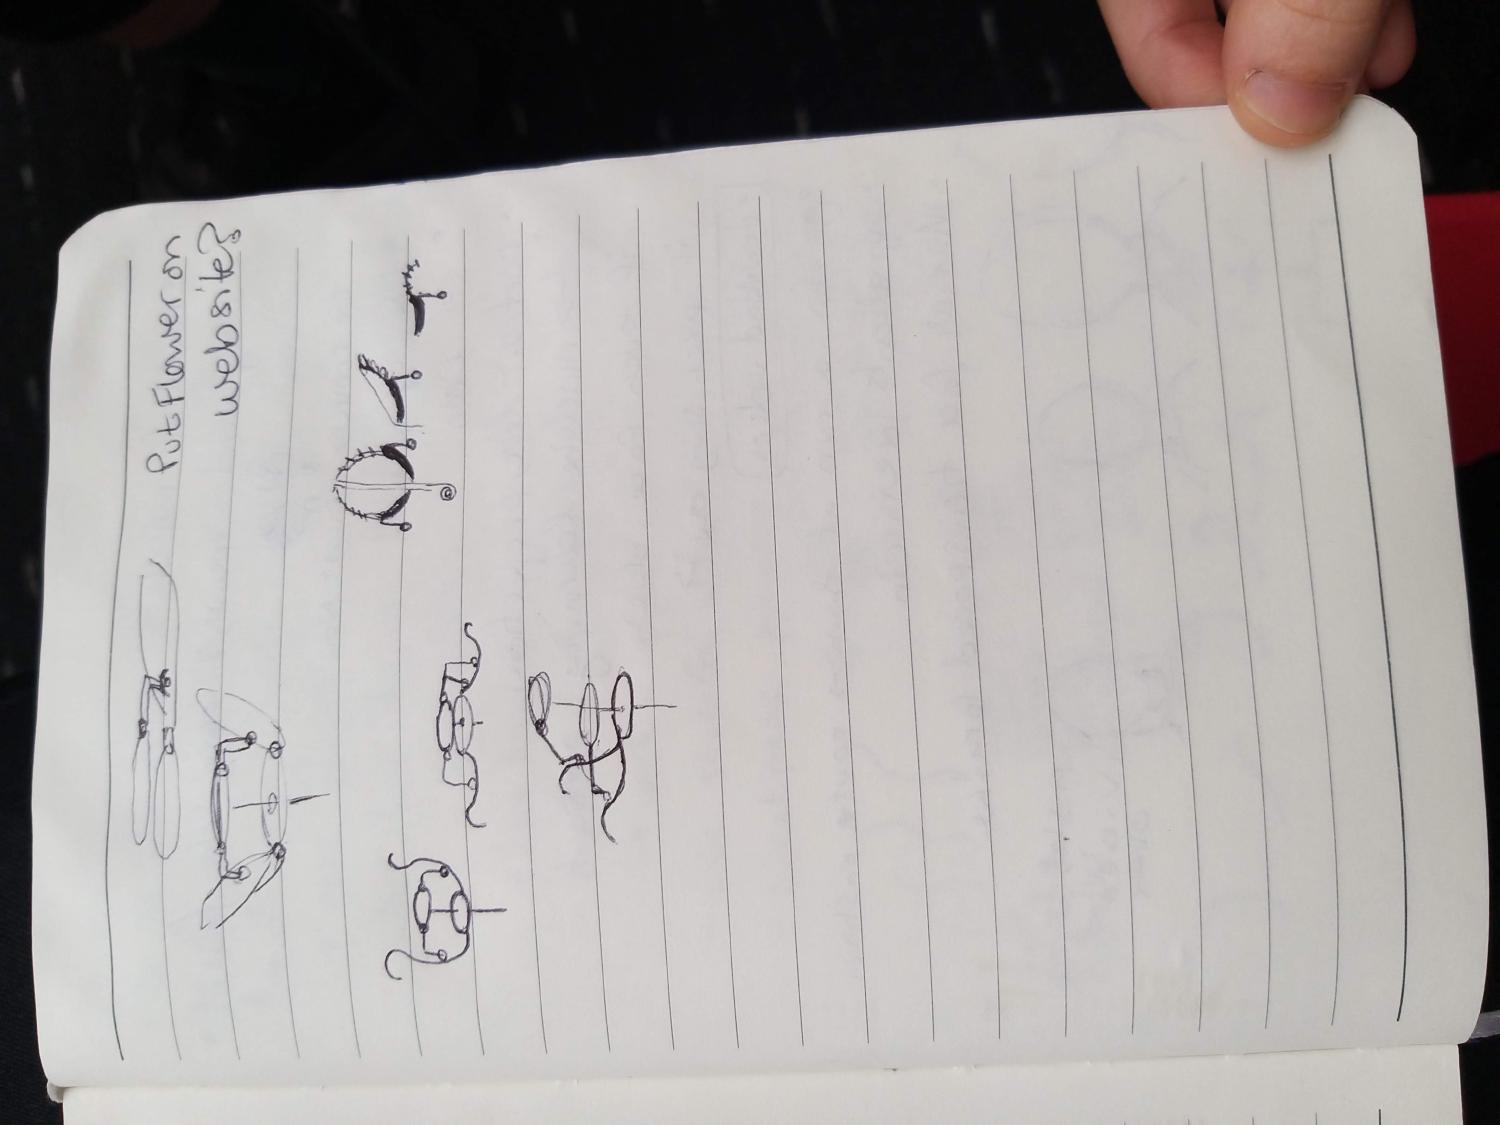 Put Flower on
website?